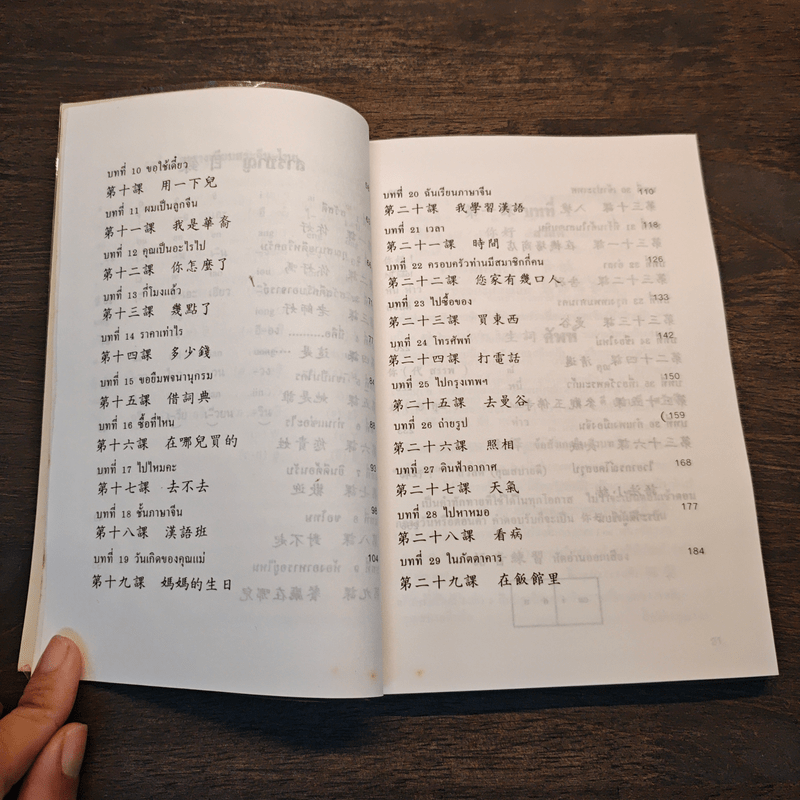 บทที่ 10 ขอใช้เดี๋ยว
第十課 用一下兒
บทที่ 11 ผมเป็นลูกจีน
第十一課 我是華裔
บทที่ 12 คุณเป็นอะไรไป
第十二課 你怎麼了
บทที่ 13 กี่โมงแล้ว
第十三課 幾點了
บทที่ 14 ราคาเท่าไร
第十四課 多少錢
บทที่ 15 ขอยืมพจนานุกรม
第十五課 借詞典
บทที่ 16 ซื้อที่ไหน
第十六課 在哪兒買的
บทที่ 17 ไปไหมคะ
第十七課 去不去
บทที่ 18 ชั้นภาษาจีน
第十八課 漢語班
บทที่ 19 วันเกิดของคุณแม่ 104
第十九課 媽媽的生日
บทที่ 20 ฉันเรียนภาษาจีน 110
第二十課 我學習漢語
บทที่ 21 เวลา 118
第二十一課 時間
บทที่ 22 ครอบครัวท่านมีสมาชิกกี่คน 126
第二十二課 您家有幾口人
บทที่ 23 ไปซื้อของ 133
第二十三課 買東西
บทที่ 24 โทรศัพท์ 142
第二十四課 打電話
บทที่ 25 ไปกรุงเทพฯ 150
第二十五課 去曼谷
บทที่ 26 ถ่ายรูป 159
第二十六課 照相
บทที่ 27 ดินฟ้าอากาศ 168
第二十七課 天氣
บทที่ 28 ไปหาหมอ 177
第二十八課 看病
บทที่ 29 ในภัตตาคาร 184
第二十九課 在飯館里